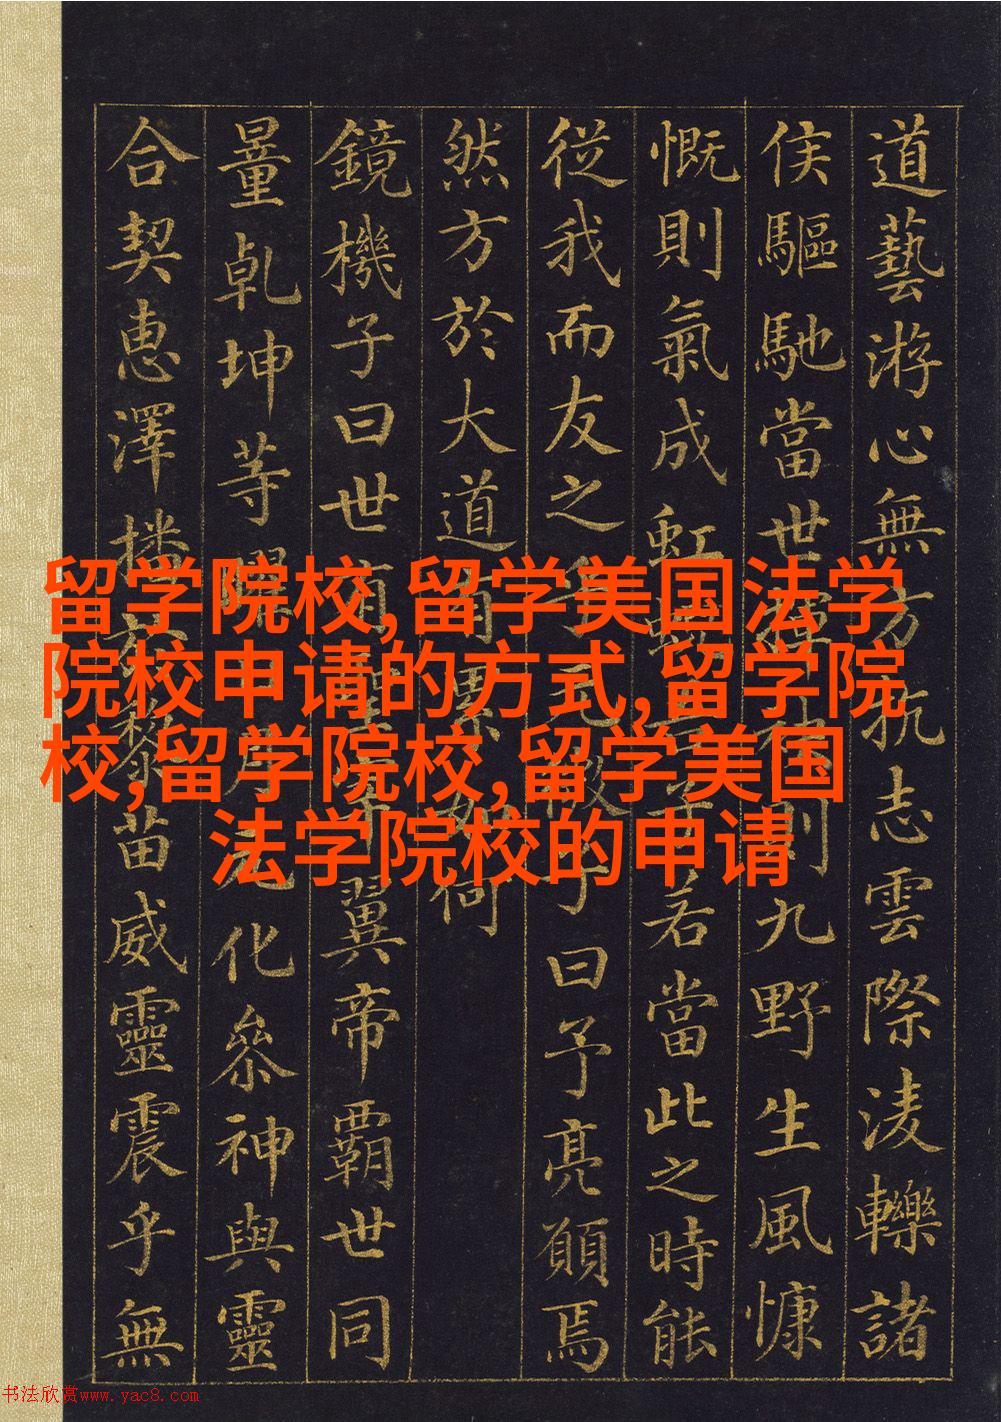 留学院校,留学美国法学
院校申请的方式,留学院
校,留学院校,留学美国
法学院校的申请
道藝游心無方抗志雲際淩轢諸
侯驅馳當世則九野生風慷
慨則氣成虹若當此之時能
從我而友之子曰予亮願焉
然方於大道有何
鏡機子曰世有翼帝霸世同
量乾坤等曜月化參神與靈
合契惠澤播黎苗威靈震乎無
书法欣赏www.yac8.com